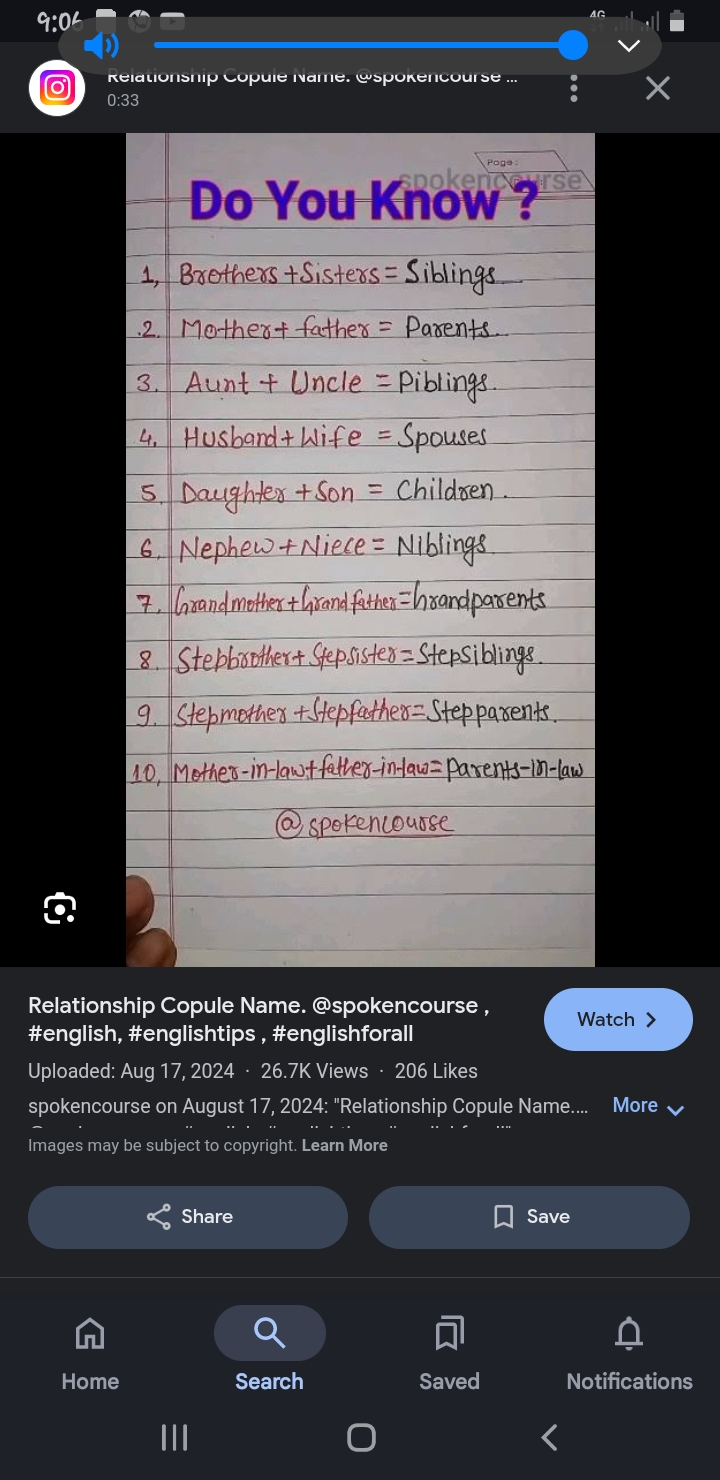 9:06
4G
Relationship Copule Name. @spokencourse ...
0:33
Page:
spokencourse
Do You Know ?
1, Brothers + Sisters = Siblings
2. Mother + father = Parents.
3. Aunt + Uncle = Piblings.
4, Husband + Wife = Spouses
5. Daughter + Son = Children.
6. Nephew + Niece = Niblings
7. Grandmother + Grandfather = Grandparents
8. Stepbrother + Stepsister = Stepsiblings.
9. Stepmother + Stepfather = Stepparents.
10, Mother-in-law + father-in-law = Parents-in-law
@spokencourse
Relationship Copule Name. @spokencourse ,
#english, #englishtips , #englishforall
Watch
Uploaded: Aug 17, 2024 · 26.7K Views · 206 Likes
spokencourse on August 17, 2024: "Relationship Copule Name.... More
Images may be subject to copyright. Learn More
Share
Save
Home
Search
Saved
Notifications